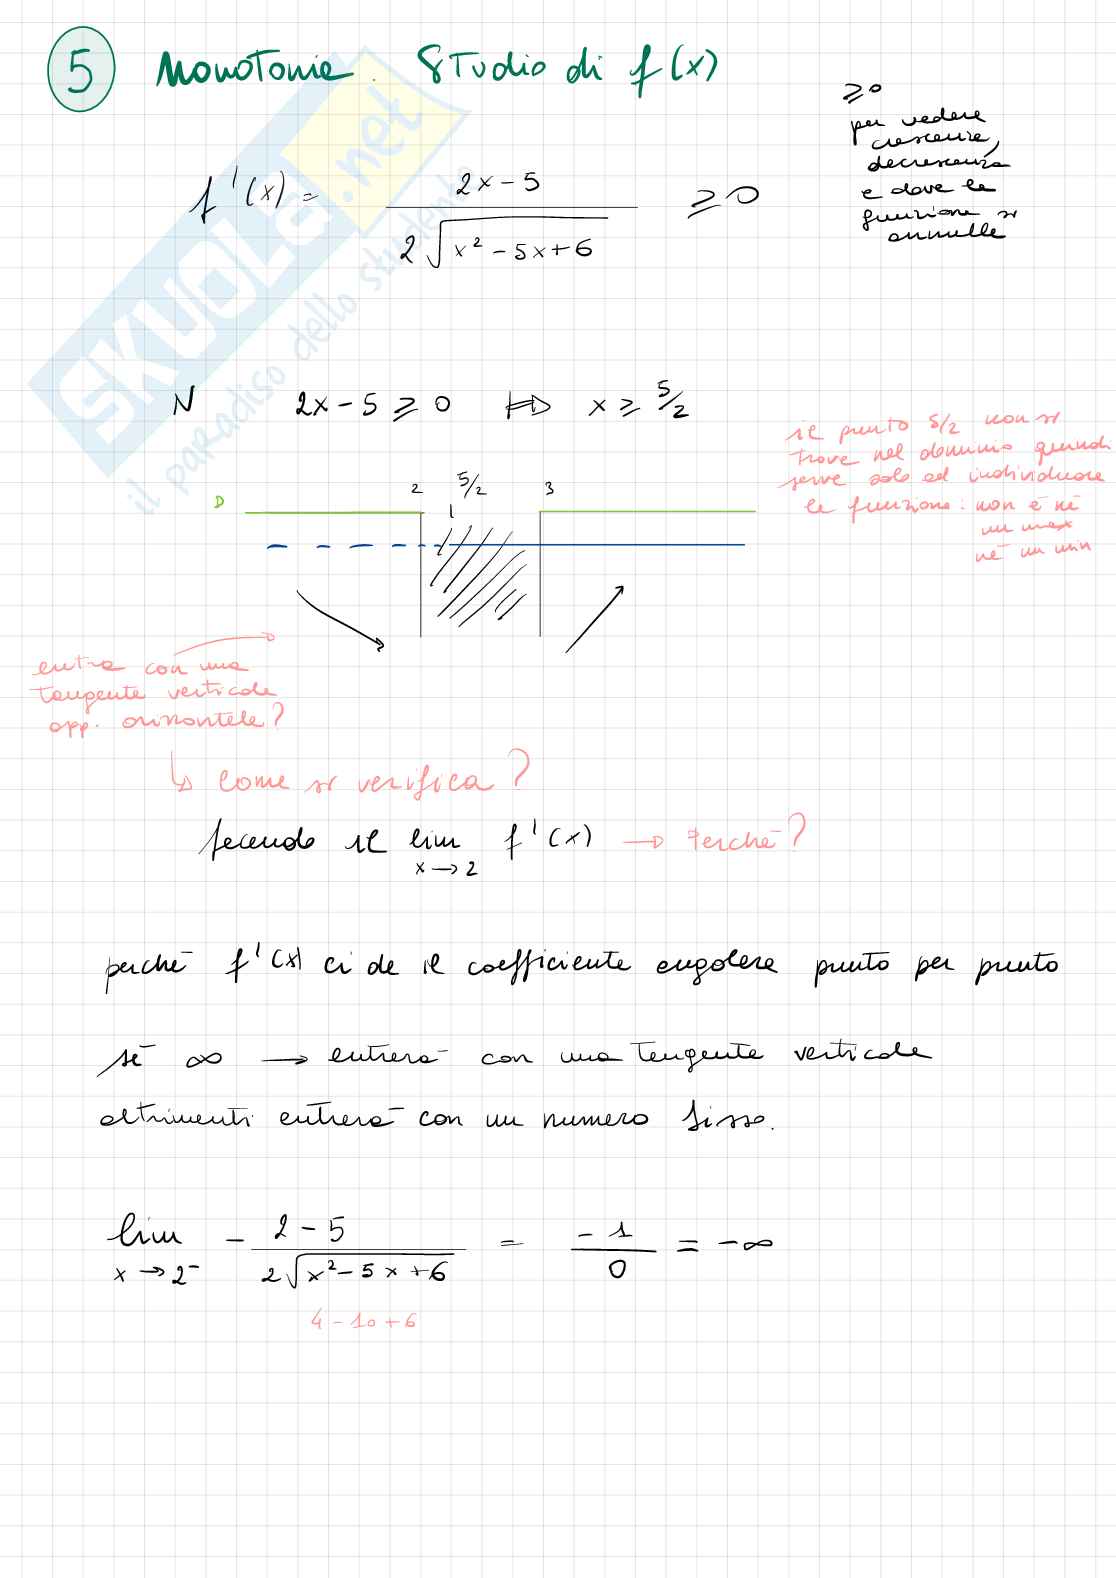 5 Monotonia. Studio di f(x)
≥0
per vedere
crescenza,
decrescenza
e dove la
funzione si
annulla
f'(x) = (2x-5)/(2√(x²-5x+6)) ≥0
N 2x-5 ≥ 0 ⇔ x ≥ 5/2
il punto 5/2 non si
trova nel dominio quindi
serve solo ad individuare
la funzione: non è né
un max
né un min
2 5/2 3
D
entra con una
tangente verticale
opp. orizzontale?
↳ Come si verifica?
facendo il lim f'(x) → Perché?
x→2
perché f'(x) ci da il coefficiente angolare punto per punto
sé ∞ → entrerà con una tangente verticale
altrimenti entrerà con un numero fisso.
lim - (2-5)/(2√(x²-5x+6)) = -1/0 = -∞
x→2⁻
4-10+6
SKUOLA.net
il paradiso dello studente